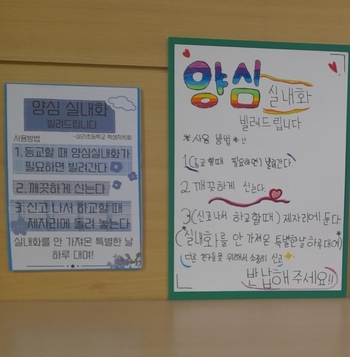 양심 실내화
빌려드립니다
사용방법
1. 등교할 때 양심실내화가
필요하면 빌려간다
2. 깨끗하게 신는다
3. 신고 나서 하교할 때
제자리에 돌려 놓는다
실내화를 안 가져온 특별한 날
하루 대여!
양심 실내화
빌려드립니다
*사용 방법*!!
1.(등교할때 필요하면) 빌려간다
2. 깨끗하게 신는다.
3(신고나서 하교할때) 제자리에 둔다
(실내화)를 안 가져온 특별한날 하루 대여)
다른 친구들을 위해서 소중히 신고
반납해 주세요!!